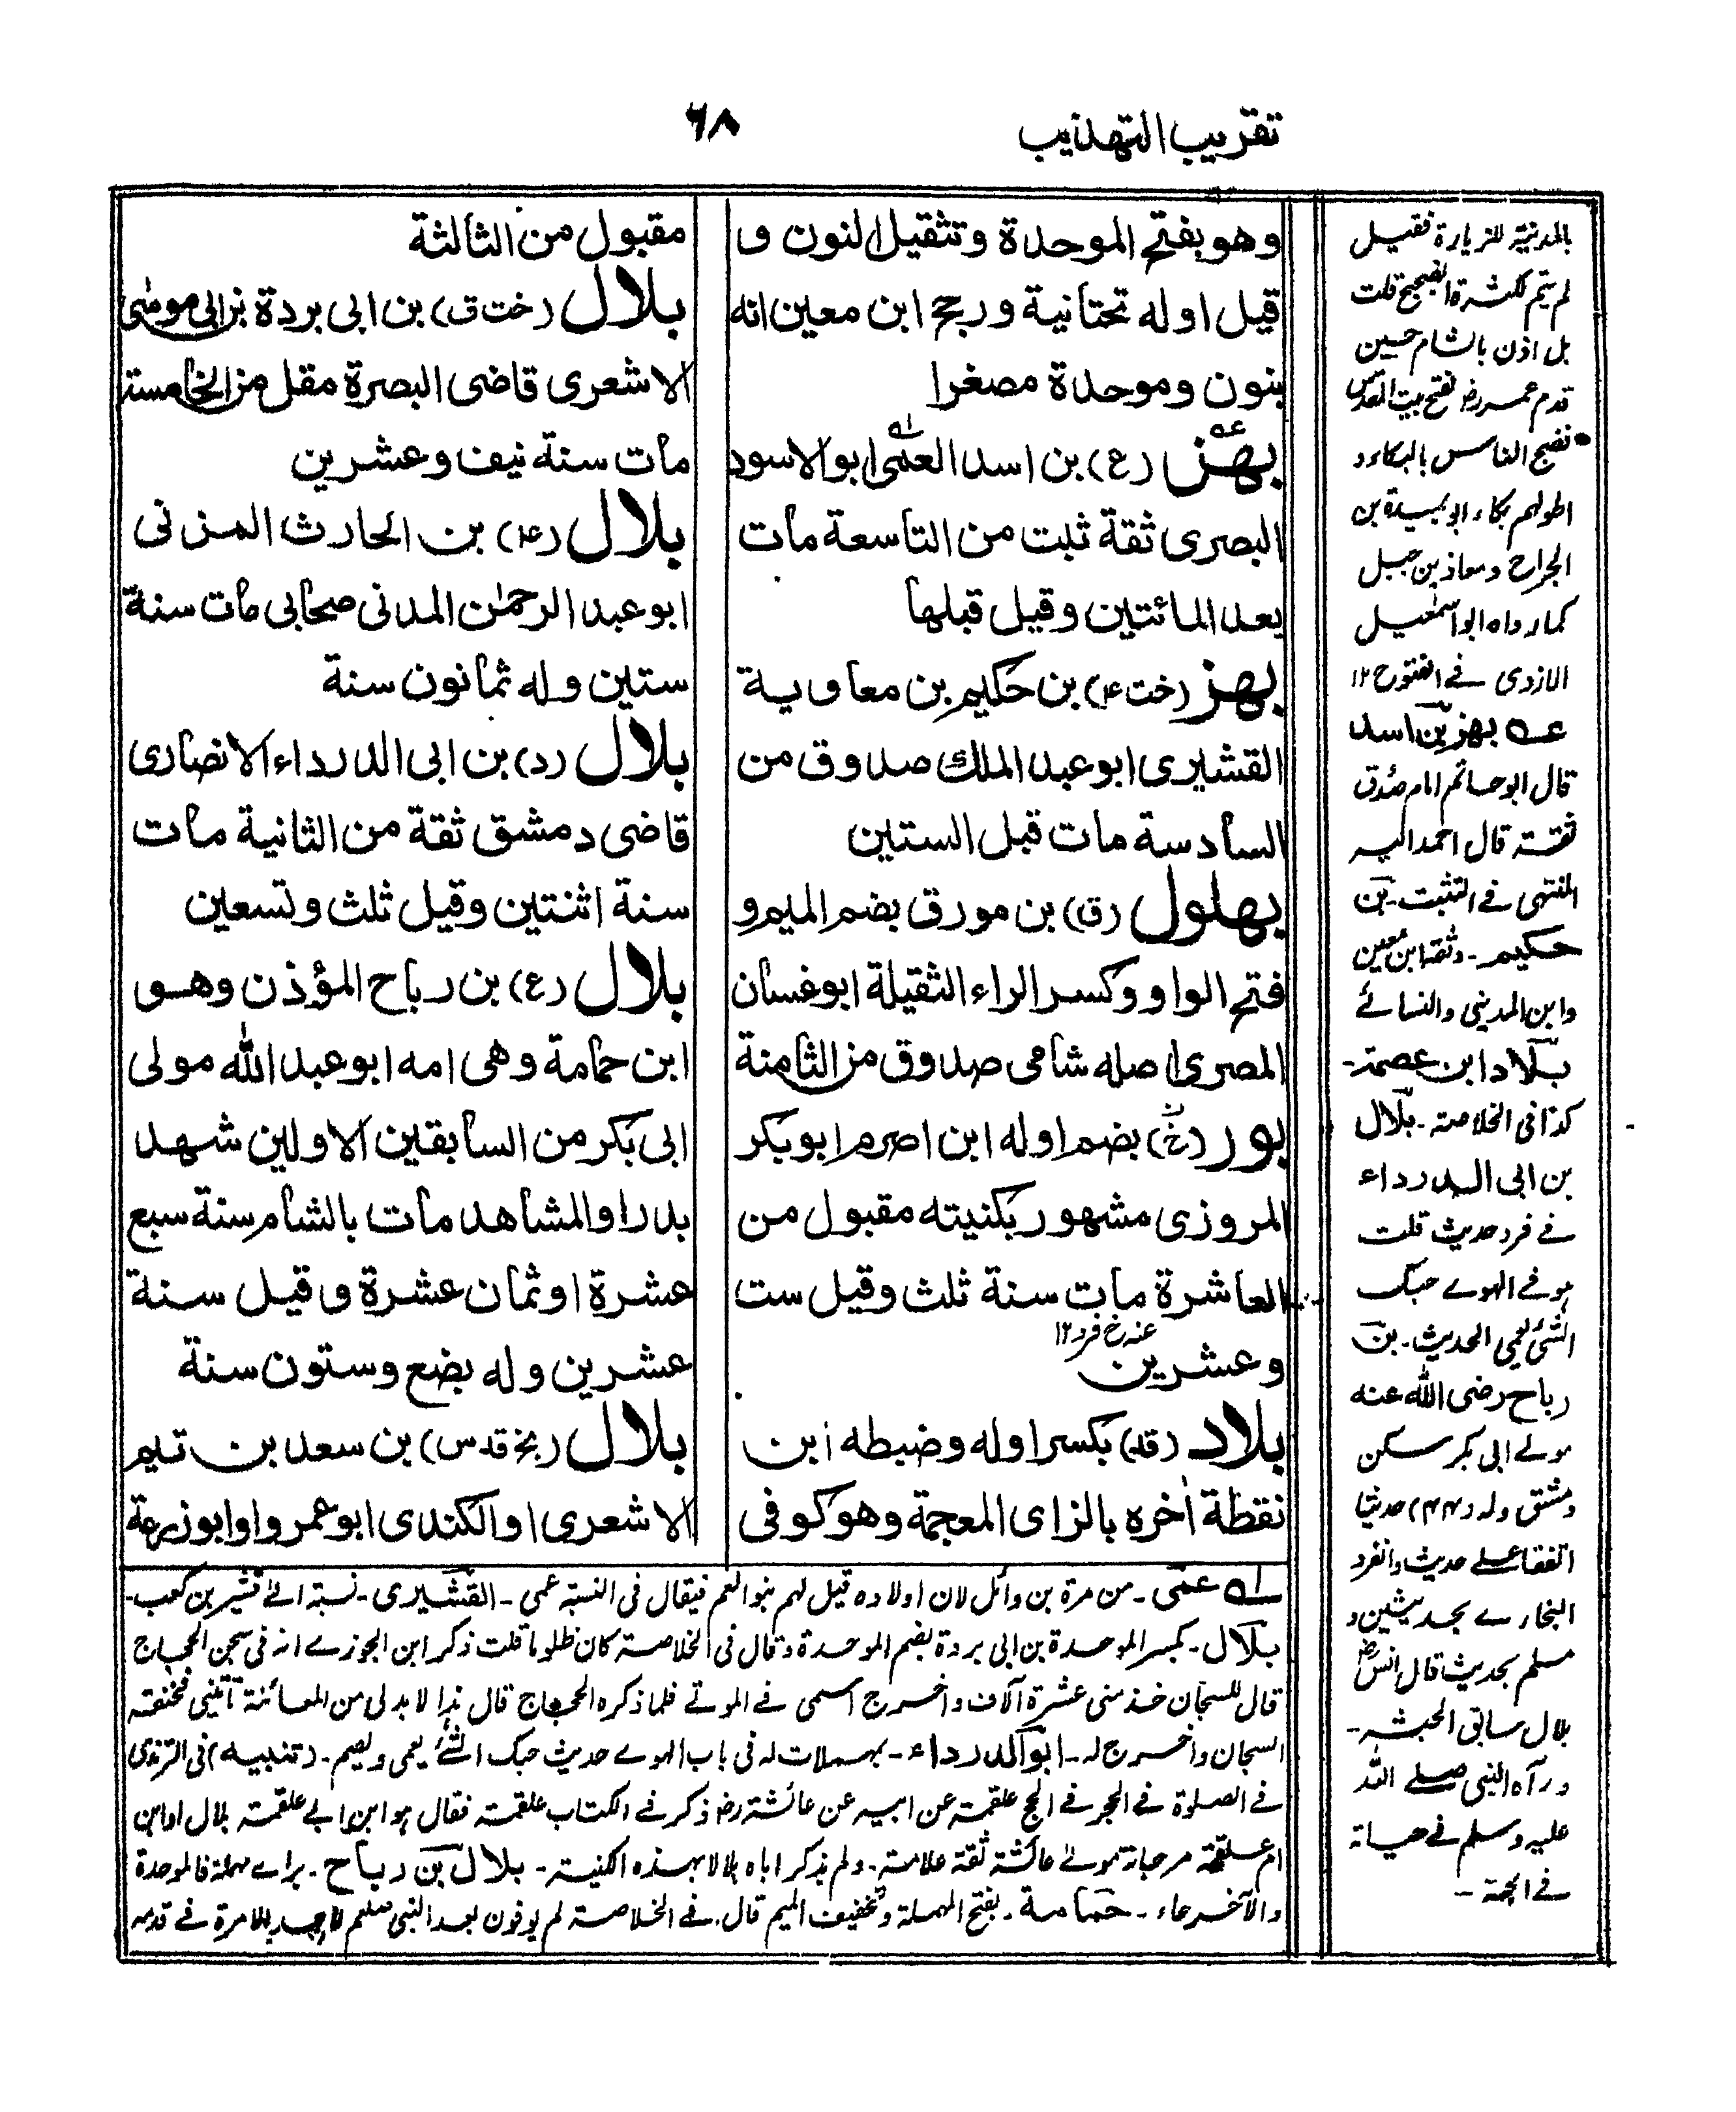 تقريب التهذيب
٦٨
وهو بفتح الموحدة وتثقيل النون و
قيل اوله تحتانية ورجح ابن معين انه
بنون وموحدة مصغرا
بهز (ع) بن اسد العمى ابو الاسود
البصرى ثقة ثبت من التاسعة مات
بعد المائتين وقيل قبلها
بهز (خت ۴) بن حكيم بن معاوية
القشيرى ابو عبد الملك صدوق من
السادسة مات قبل الستين
بهلول (ق) بن مورق بضم الميم و
فتح الواو وكسر الراء الثقيلة ابو غسان
المصرى اصله شامى صدوق من الثامنة
بور (خ) بضم اوله ابن اصرم ابو بكر
المروزى مشهور بكنيته مقبول من
العاشرة مات سنة ثلث وقيل ست
عنه خ فرد ١٢
وعشرين
بلاد (قد) بكسر اوله وضبطه ابن
نقطة أخره بالزاى المعجمة وهو كوفى
مقبول من الثالثة
بلال (خت ت) بن ابى بردة بن ابى موسى
الاشعرى قاضى البصرة مقل من الخامسة
مات سنة نيف وعشرين
بلال (۴) بن الحارث المزنى
ابو عبد الرحمن المدنى صحابى مات سنة
ستين وله ثمانون سنة
بلال (د) بن ابى الدرداء الانصارى
قاضى دمشق ثقة من الثانية مات
سنة اثنتين وقيل ثلث وتسعين
بلال (ع) بن رباح المؤذن وهو
ابن حمامة وهى امه ابو عبد الله مولى
ابى بكر من السابقين الاولين شهد
بدرا والمشاهد مات بالشام سنة سبع
عشرة او ثمان عشرة وقيل سنة
عشرين وله بضع وستون سنة
بلال (بخ قد س) بن سعد بن تميم
الاشعرى او الكندى ابو عمرو او ابو زرعة
بالمدينة للزيارة فقيل
لم يتم لكثرة الضجيج قلت
بل اذن بالشام حين
قدم عمر رض لفتح بيت المقدس
فضج الناس بالبكاء و
اطولهم بكاء ابو عبيدة بن
الجراح ومعاذ بن جبل
كما رواه ابو اسمعيل
الازدى فے الفتوح ١٢
عه بهز بن اسد
قال ابو حاتم امام صدوق
ثقة قال احمد اليه
المنتهى فے التثبت - بن
حكيم - وثقه ابن معين
وابن المدينى والنسائے
بلاد ابن عصمة -
كذا فى الخلاصة - بلال
بن ابى الدرداء
فے فرد حديث قلت
هو فے الهوے حبك
الشئ يعمى الحديث - بن
رباح رضى الله عنه
مولے ابى بكر سكن
دمشق وله (۴۴) حديثا
اتفقا علے حديث وانفرد
البخارے بحديثين و
مسلم بحديث قال انس رض
بلال سابق الحبشة -
ورآه النبى صلے الله
عليه وسلم فے حياته
فے الجنة -
له عمى - من مرة بن وائل لان اولاده قيل لهم بنو العم فيقال فى النسبة عمى - القشيرى - نسبة الى قشير بن كعب -
بلال - بكسر الموحدة بن ابى بردة بضم الموحدة وقال فى الخلاصة كان ظلوما قلت ذكر ابن الجوزے انه فى سجن الحجاج
قال للسجان خذ منى عشرة آلاف واخرج اسمى فے الموتے فلما ذكره الحجاج قال هذا لا بد لى من المعائنة تأتينى فخنقه
السجان واخرج له - ابو الدرداء - بمهملات له فى باب الهوے حديث حبك الشئ يعمى ويصم - (تنبيه) فى الترمذى
فے الصلوة فے الحجر فے الحج علقمة عن ابيه عن عائشة رض ذكر فے الكتاب علقمة فقال هو ابن ابے علقمة بلال او ابن
ام علقمة مرجانة مولے عائشة ثقة علامة - ولم يذكر اباه بلالا بهذه الكنية - بلال بن رباح - براے مهملة فالموحدة
والآخر حاء - حمامة - بفتح المهملة وتخفيف الميم قال فے الخلاصة لم يوذن بعد النبى صلعم لاحد الا مرة فے قدمه